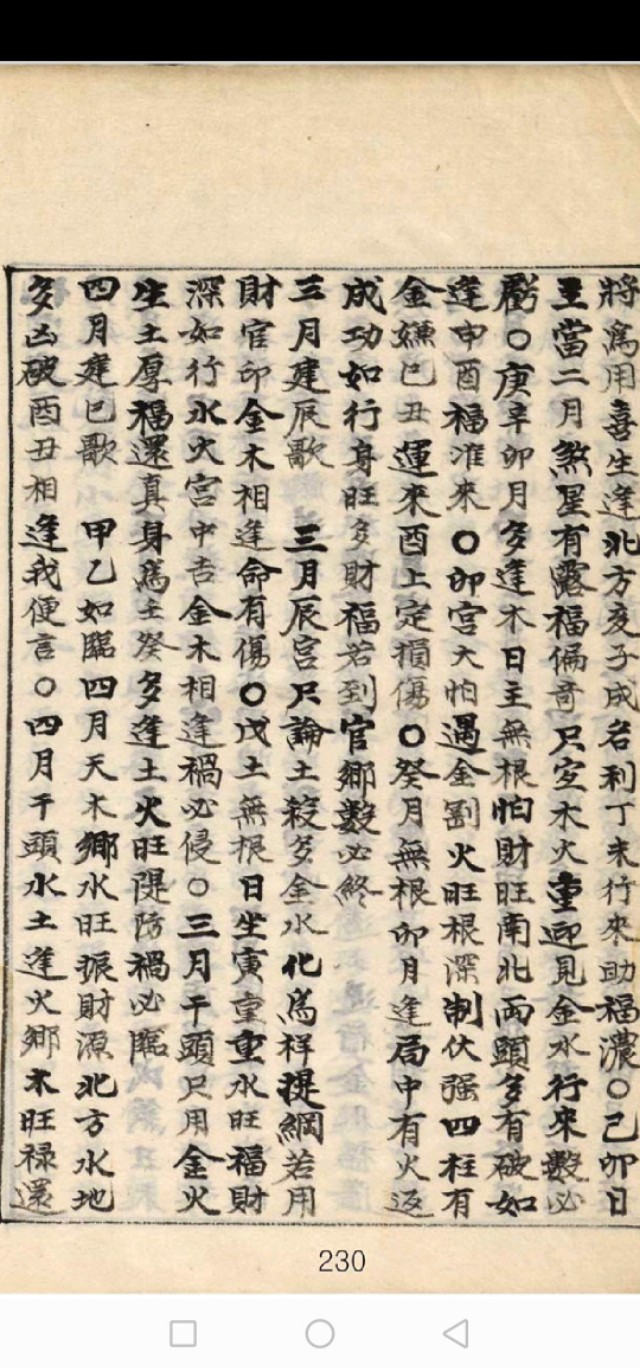 將為用喜生逢北方亥子成名利丁未行來助福濃〇己卯日
主當二月煞星有露福偏奇只宜木火重迎見金水行來數必
虧〇庚辛卯月多逢木日主無根怕財旺南北兩頭多有破如
逢申酉福准來〇卯宮大怕遇金割火旺根深制伏强四柱有
金嫌巳丑運來酉上定損傷〇癸月無根卯月逢局中有火返
成功如行身旺多財福若到官鄉數必終
三月建辰歌 三月辰宮只論土殺多金水化為祥提綱若用
財官印金木相逢命有傷〇戊土無根日坐寅重重水旺福財
深如行水火宮中吉金木相逢禍必侵〇三月干頭只用金火
生土厚福還真身為壬癸多逢土火旺隄防禍必臨
四月建巳歌 甲乙如臨四月天木鄉水旺振財源北方水地
多凶破酉丑相逢我便言〇四月干頭水土逢火鄉木旺祿還
230